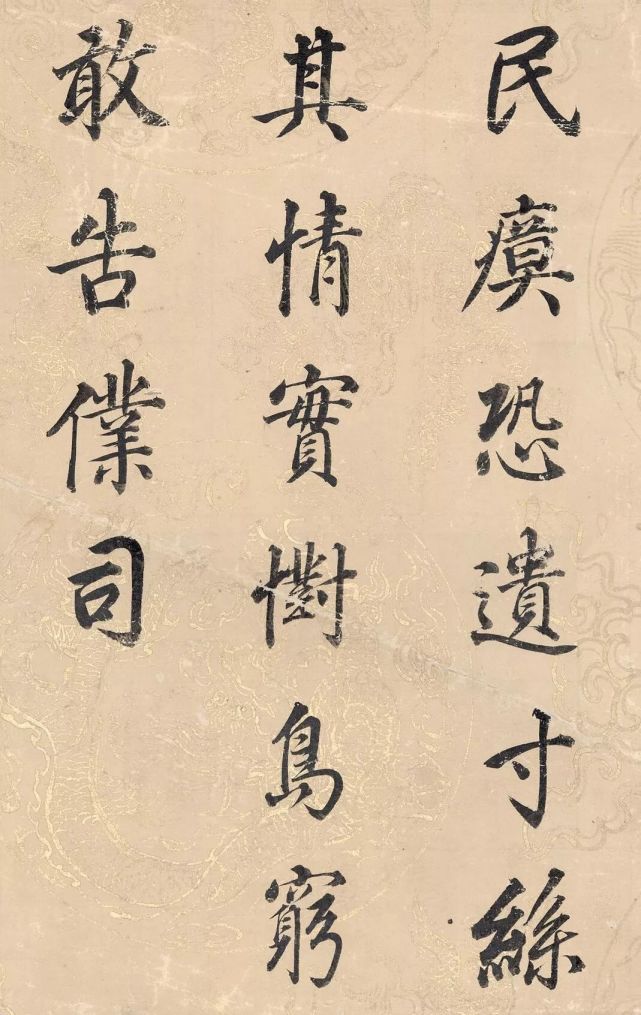 民瘼恐遺寸絲
其情實懟鳥窮
敢告僕司